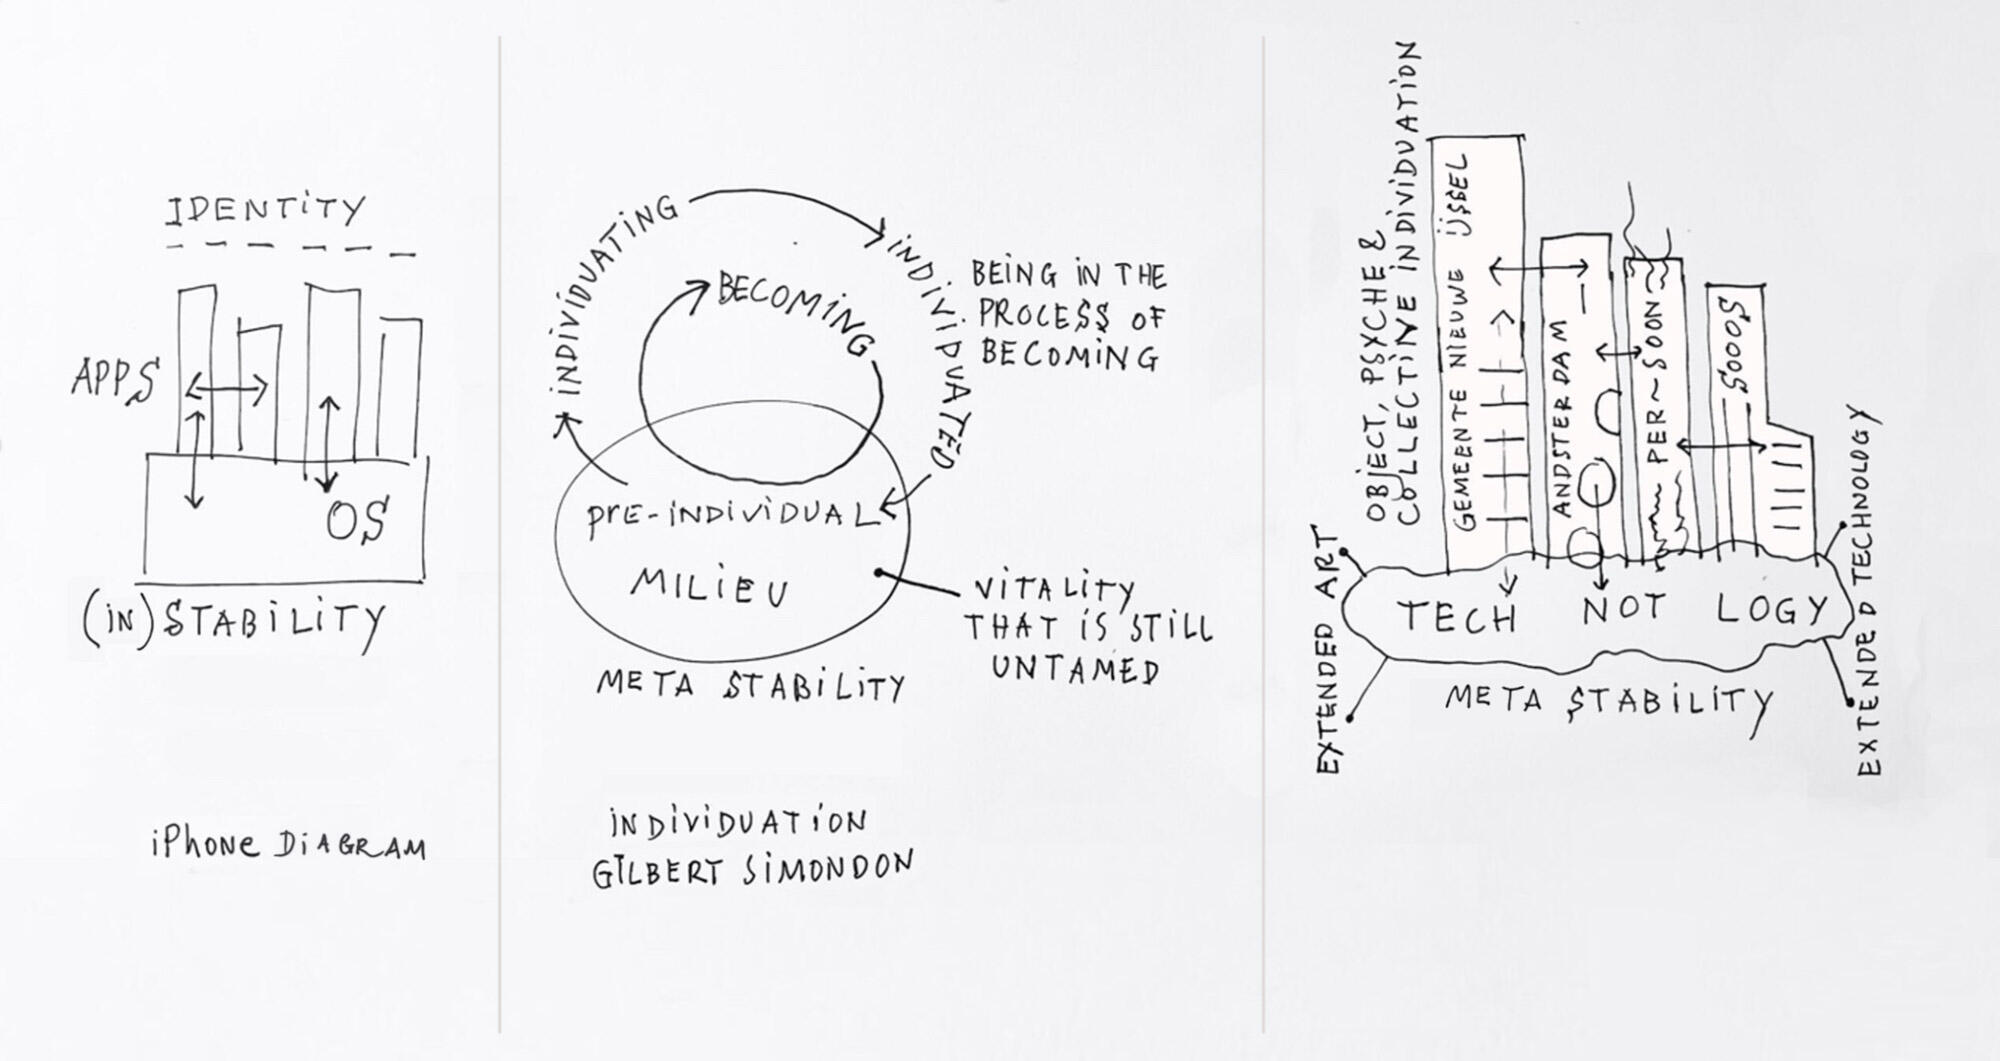 IDENTITY
APPS
OS
(IN)STABILITY
iPhone DIAGRAM
INDIVIDUATING
INDIVIDUATED
BECOMING
BEING IN THE
PROCESS OF
BECOMING
PRE-INDIVIDUAL
MILIEU
VITALITY
THAT IS STILL
UNTAMED
META STABILITY
INDIVIDUATION
GILBERT SIMONDON
OBJECT, PSYCHE &
COLLECTIVE INDIVIDUATION
GEMEENTE NIEUWE IJSSEL
ANDSTERDAM
PER~SOON
SOOOS
TECH NOT LOGY
EXTENDED ART
EXTENDED TECHNOLOGY
META STABILITY